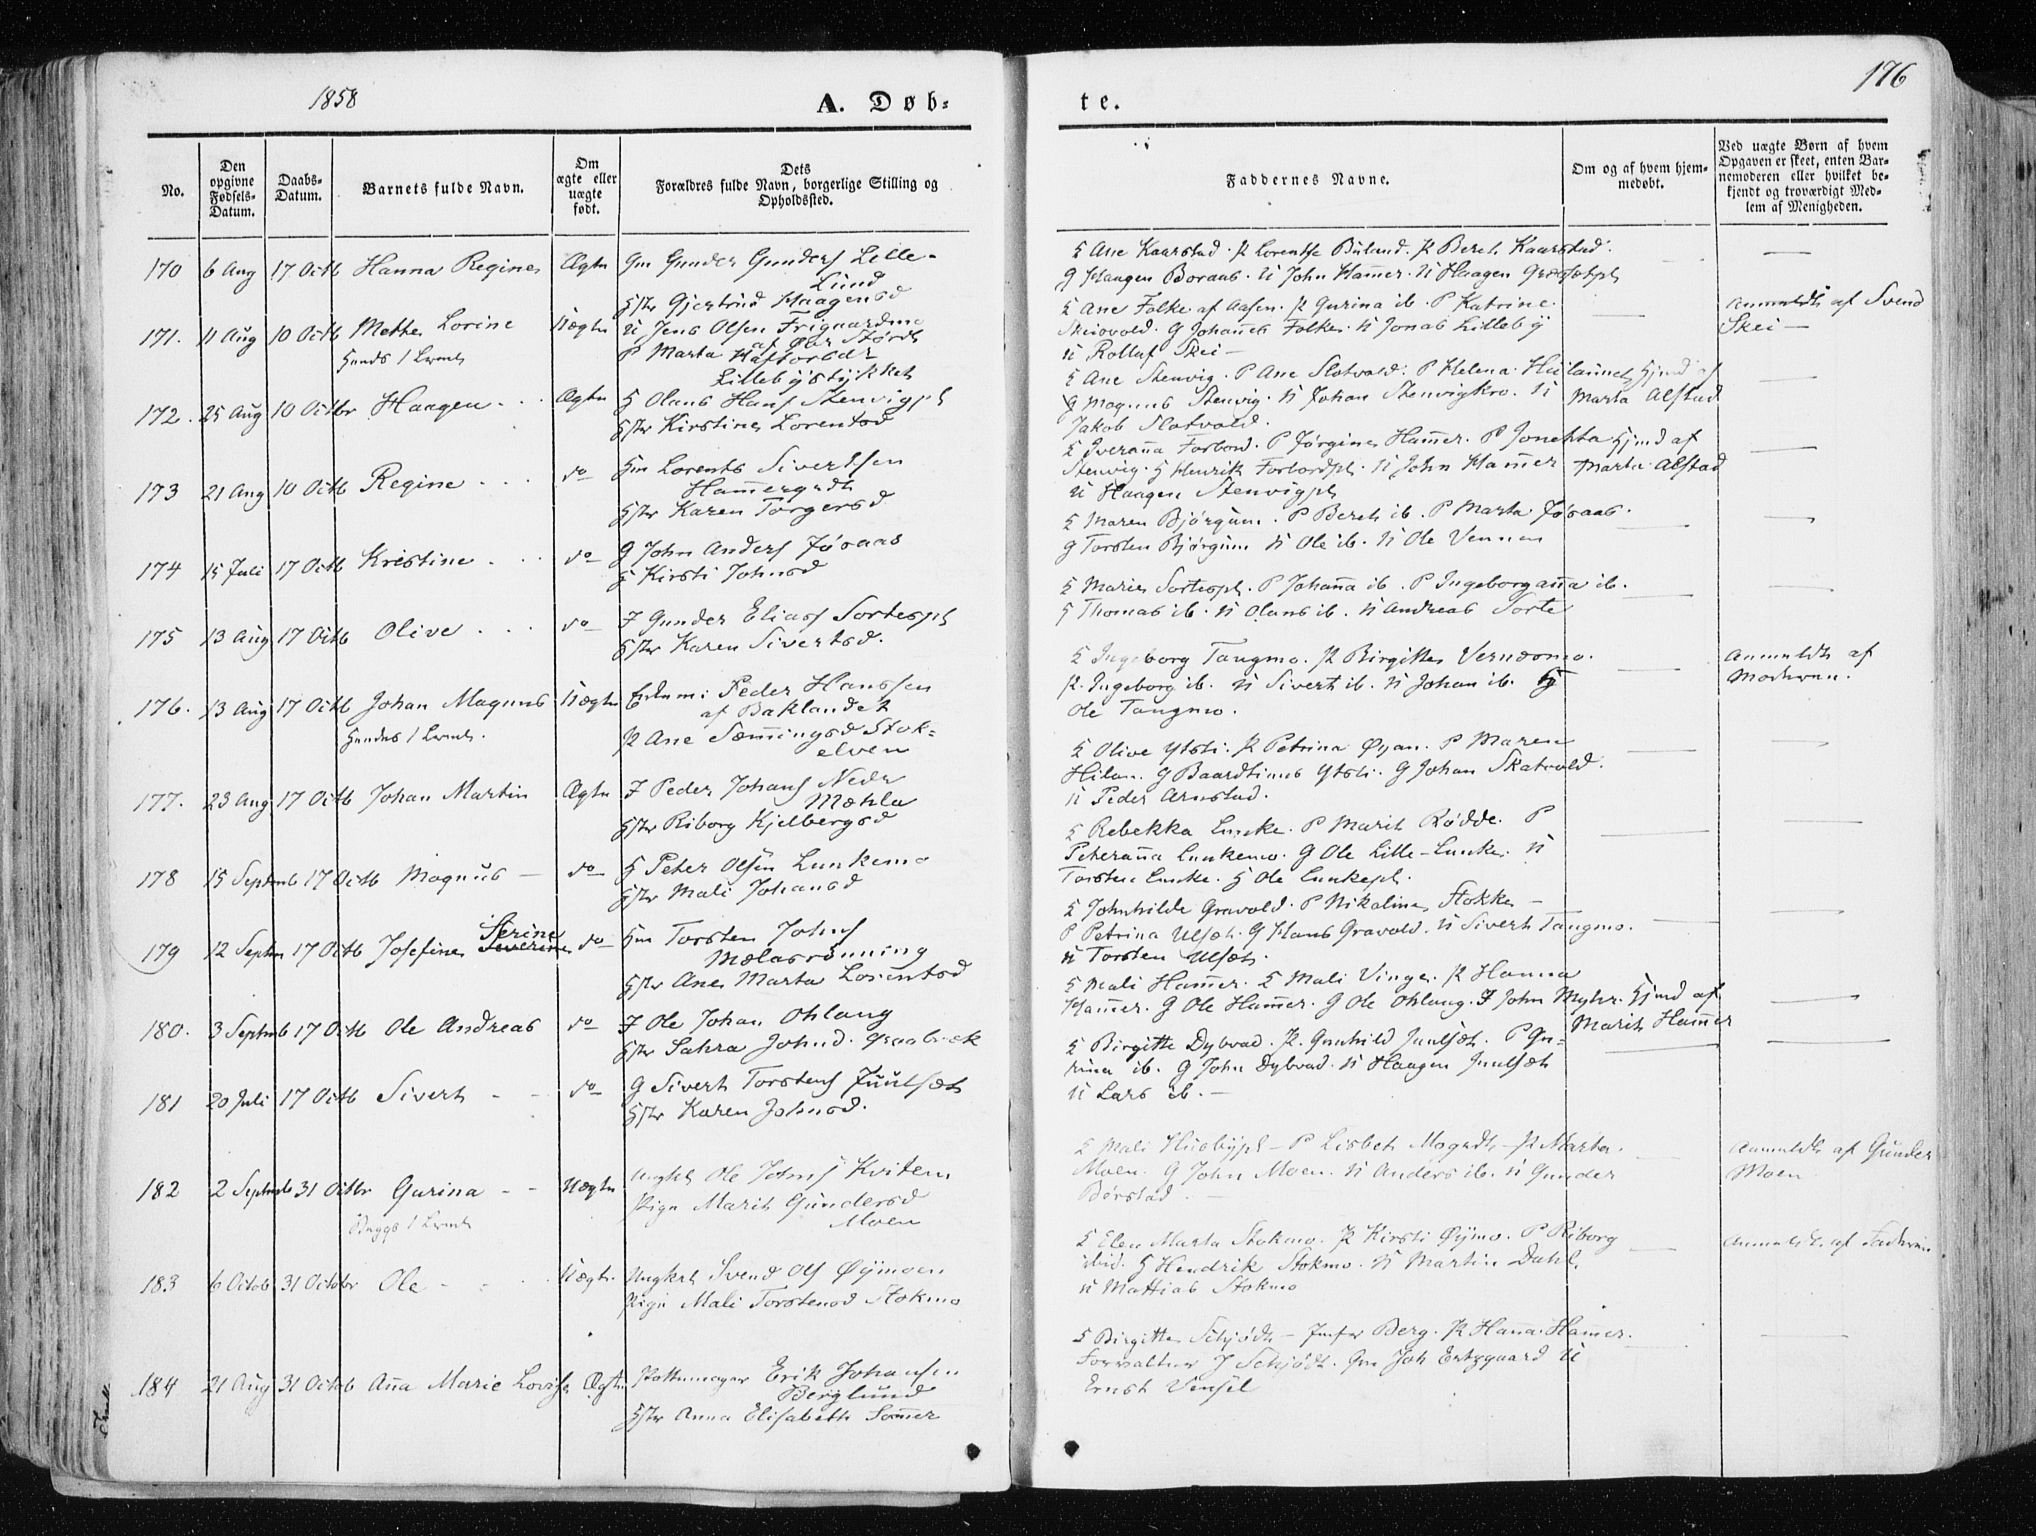 1858
A. Døb-
te.
176
No.
Den opgivne Fødsels-Datum.
Daabs-Datum.
Barnets fulde Navn.
Om ægte eller uægte født.
Dets Forældres fulde Navn, borgerlige Stilling og Opholdssted.
Faddernes Navne.
Om og af hvem hjem-medøbt.
Ved uægte Børn af hvem Opgaven er skeet, enten Bar-nemoderen eller hvilket be-kjendt og troværdigt Med-lem af Menigheden.
170 6 Aug 17 Octb Hanna Regine Ægte Gm Gunder Gunders Lille-
Lund
Hstr Gjertrud Haagensd
Ane Kaarstad. Lorentse Bülund. Beret Kaarstad.
G Haagen Boraas. U John Hamer. U Haagen
171. 11 Aug 10 Octb Mette Lorine Uægte U Jens Olsen
af Øvr Størdt
Hendes 1 Lermt
P Marta
Lillebystykket
Ane Folke af Aasen. Gurina ib. P Katrine
Skeisvold. G Johannes Folke. U Jonas Lilleby
U Rollaf Skei -
Anmeldt af Svend
Skei -
172. 25 Aug 10 Octbr Haagen Ægte H Olaus Hans Stenvigpl
Hstr Kirstine Lorentsd
Ane Stenvig. P Ane Slotvold. P Helena
G Magnus Stenvig. U Johan Stenvigkro. U
Jakob Slotvold.
Hjmd af
Marta Alstad
173 21 Aug 10 Octb Regine do Hm Lorents Sivertsen
Hamergrdt
Hstr Karen Torgersd
Iveranna Forbord. P Jørgine Hamer. P Jonetta
Stenvig. H Henrik Forbordpl. U John Hamer
U Haagen Stenvigpl
Hjmd af
Marta Alstad
174 15 Juli 17 Octb Kristine do G John Anders Jøsaas
H Kirsti Johnsd
Maren Bjørgum. P Beret ib. P Marta Jøsaas.
G Torsten Bjørgum U Ole ib. U Ole Vennen
175 13 Aug 17 Octb Olive do J Gunder Elias Sortespl
Hstr Karen Sivertsd.
Marie Sortespl. P Johanna ib. P Ingeborganna ib.
H Thomas ib. U Olaus ib. U Andreas Sorte
176. 13 Aug 17 Octb Johan Magnus Uægte Enkem: Peder Hanssen
af Baklandet
Hendes 1 Lermt.
K Ane Sæmingsd Stok-
elven
Ingeborg Tangmo. K Birgitte Vernesmo.
K. Ingeborg ib. U Sivert ib. U Johan ib. G
Ole Tangmo.
Anmeldt af
Moderen.
177. 23 Aug 17 Octb Johan Martin Ægte J Peder Johans Nedr
Mæhla
Hstr Riborg Kjelbergsd
Olive Ytsti. K Petrina Øyan. P Maren
Hilan. G Baardtinus Ytsti. G Johan Skatvold.
U Peder Arnstad.
178 15 Septemb 17 Octb Magnus - do H Peter Olsen Lunkemo
Hstr Mali Johansd
Rebekka Lunke. P Marit Rødde. P
Peteranna Lunkemo. G Ole Lille-Lunke. U
Torsten Lunke. H Ole Lunkepl.
179 12 Septem 17 Octb Josefine Serine Severine do Hm Torsten Johns
Mælasrønning
Hstr Ane Marta Lorentsd
Johnhilde Gravold. P Nikoline Stokke -
P Petrina Ulsæt. G Hans Gravold. U Sivert Tangmo.
U Torsten Ulsæt.
180. 3 Septemb 17 Octb Ole Andreas do J Ole Johan Ohlang
Hstr Sahra Johnsd. Graabæk
Mali Hamer. Mali Vinge. K Hanna
Hamer. G Ole Hamer. G Ole Ohlang. J John Myhr.
Hjmd af
Marit Hamer
181 20 Juli 17 Octb Sivert do G Sivert Torstens Juulsæt
Hstr Karen Johnsd.
Birgitte Dybvad. K. Gunhild Juulsæt. P Gu-
rina ib. G John Dybvad. U Haagen Juulsæt
U Lars ib. -
182 2 Septemb 31 Octbr Gurina Uægte Ungkl Ole Johns Kvitem
Begges 1 Lermt
Pige Marit Gundersd
Moen
Mali Husbypl - P Lisbet Mogrdt - K Marta
Moen. G John Moen. U Anders ib. U Gunder
Børstad
Anmeldt af Gunder
Moen
183 6 Octob 31 Octobr Ole Uægte. Ungkrl Svend Ols Øymoen
Pige Mali Torstensd Stokmo
Elen Marta Stokmo. K Kirsti Øymo. P Riborg
ibid. H Hendrik Stokmo. U Martin Dahl.
U Mattias Stokmo
Anmeldt. af Faderen
184 21 Aug 31 Octob Anna Marie Lovise Ægte Pottemager Erik Johansen
Berglund
Hstr Anna Elisabeth Somer
Birgitte Schjødt - Jomfr Berg. K Hanna Hamer.
Forvalter J Schjødt. Gm Joh Ertzgaard U
Ernst Vensel